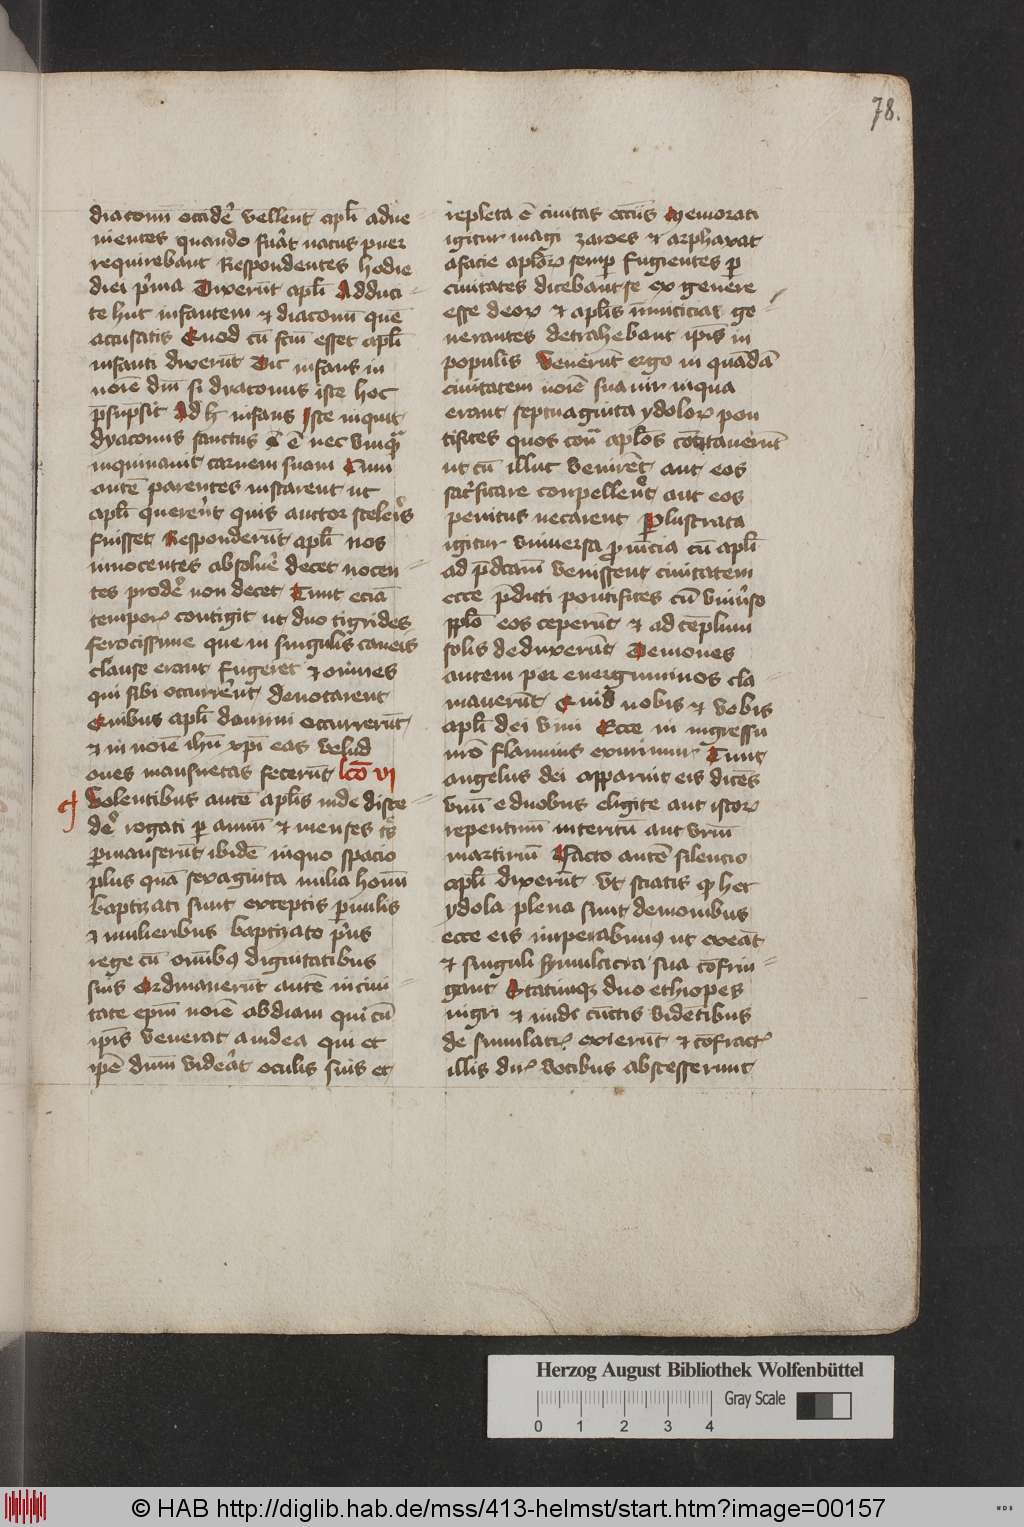 78.
diaconū occidē vellent apłi adue
nientes quando fuāt natus puer
requirebant Respondentes hodie
diei p̄ma Dixerūt apłi Adduci
te huc infantem ⁊ diaconū quē
accusatis Quod cū fcm̄ esset apłi
infanti dixerūt Dic infans in
noīe dnī si dyaconus iste hoc
p̄supsit Ad h̄ infans Iste inquit
dyaconus sanctus ē nec vnq̄
inquinauit carnem suam Cum
autē parentes instarent ut
apłi quererēt quis auctor sceleris
fuisset Responderūt apłi nos
innocentes absoluē decet nocen
tes prodē non decet Tunc eciā
tempor̄ contigit ut duo tigrides
ferocissime que in singulis caueis
clause erant fugerēt ⁊ omnes
qui sibi occurrēnt deuorarent
Quibus apłi domini occurrerūt
⁊ in noīe ihū xp̄i eas velud
oues mansuetas fecerūt lcō vi
Volentibus autē apłis inde disce
dē rogati p annū ⁊ menses
p̄manserūt ibidē inquo spacio
plus quā sexaginta milia homīn
baptizati sunt exceptis p̄uulis
⁊ mulieribus baptizato p̄us
rege cū omībꝫ dignitatibus
suis Ordinauerūt autē in ciui
tate ep̄m noīe abdiam qui cū
ip̄is venerat a iudea qui et
ip̄e dnm̄ videāt oculis suis et
repleta ē ciuitas ecciis Memorati
igitur magi zaroes ⁊ arphaxat
a facie aplōꝝ semp̄ fugientes p
ciuitates dicebant se ex genere
esse deoꝝ ⁊ apłis inimicicias ge
nerantes detrahebant ip̄is in
populis Venerūt ergo in quādā
ciuitatem noīe suanir in qua
erant septuaginta ydoloꝝ pon
tifices quos cont̄ aplōs concitauerūt
ut cū illuc venirēt aut eos
sacrificare conpellerēt aut eos
penitus necarent Plustrata
igitur vniuersa prouīcia cū apłi
ad p̄dcam̄ venissent ciuitatem
ecce p̄dicti pontifices cū vniūso
pplō eos ceperūt ⁊ ad tēplum
solis deduxerūt Demones
autem per energuminos cla
mauerūt Quid nobis ⁊ vobis
apłi dei viui Ecce in ingressu
vr̄o flammis exurimur Tunc
angelus dei apparuit eis dicēs
vnū e duobus eligite aut istoꝝ
repentinū interitū aut vrm̄
martiriū Facto autē silencio
apłi dixerūt Vt sciatis ꝙ hec
ydola plena sunt demonibus
ecce eis imperabimꝰ ut exeāt
⁊ singuli symulacra sua cōfrin
gant Statimqꝫ duo ethiopes
nigri ⁊ nudi cunctis videntibus
de simulacꝝ exierūt ⁊ cōfractꝝ
illis dirꝭ vocibus abscesserunt
Herzog August Bibliothek Wolfenbüttel
0 1 2 3 4
Gray Scale
© HAB http://diglib.hab.de/mss/413-helmst/start.htm?image=00157